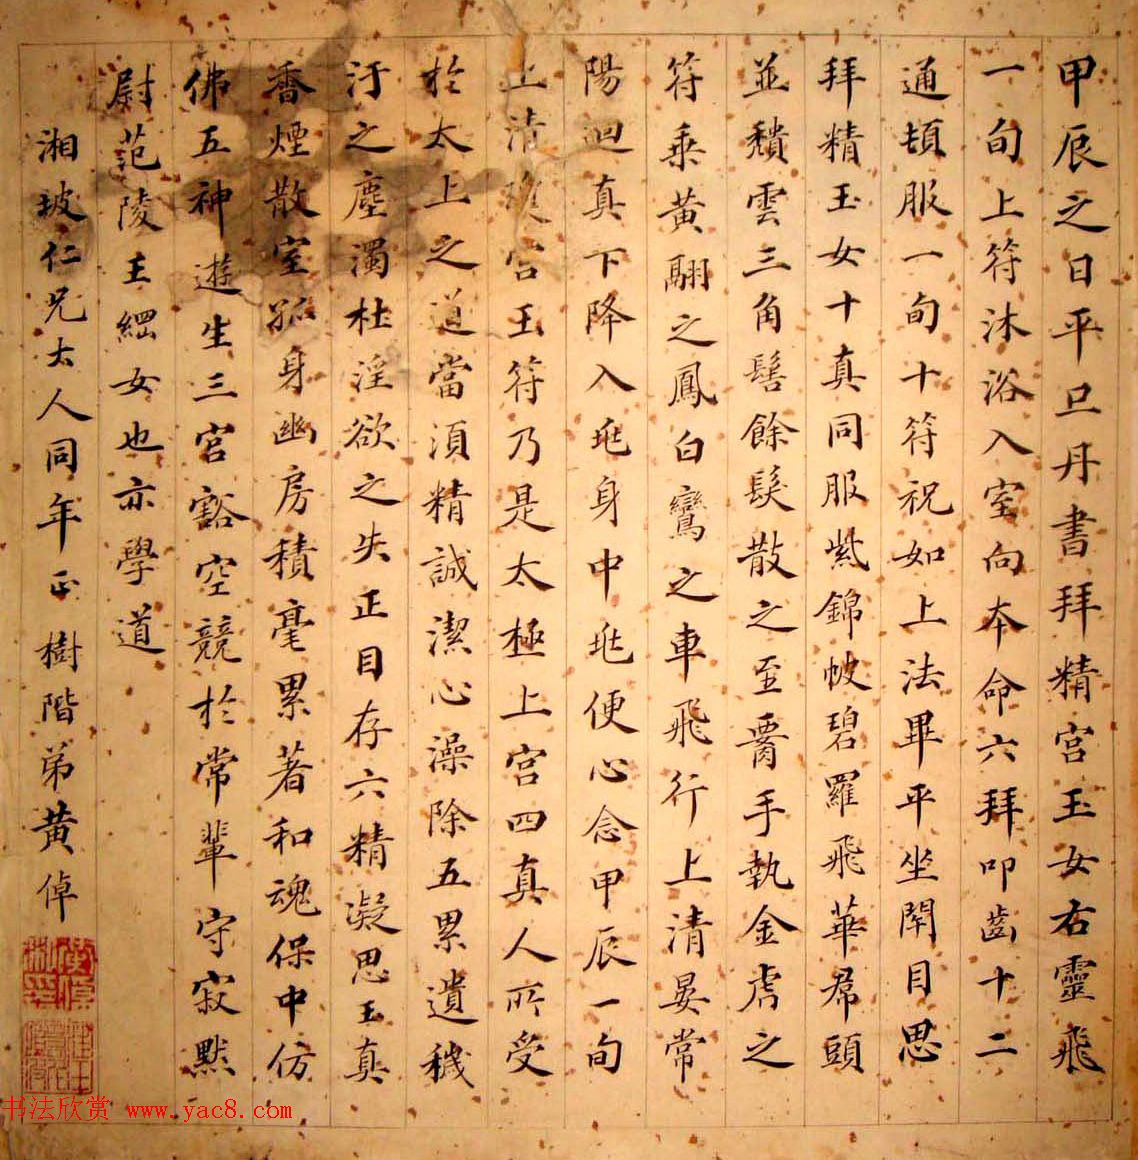 甲辰之日平旦丹書拜精宮玉女右靈飛
一旬上符沐浴入室向本命六拜叩齒十二
通頓服一旬十符祝如上法畢平坐閉目思
拜精玉女十真同服紫錦帔碧羅飛華帬頭
並頹雲三角髻餘髮散之至腰手執金虎之
符乘黃翮之鳳白鸞之車飛行上清晏常
陽迴真下降入兆身中兆便心念甲辰一旬
上清瓊宮玉符乃是太極上宮四真人所受
於太上之道當須精誠潔心澡除五累遺穢
汙之塵濁杜淫欲之失正目存六精凝思玉真
香煙散室孤身幽房積毫累著和魂保中仿
佛五神遊生三宮豁空競於常輩守寂默
尉范陵王綱女也亦學道
湘坡仁兄大人同年正樹階弟黃倬
书法欣赏 www.yac8.com